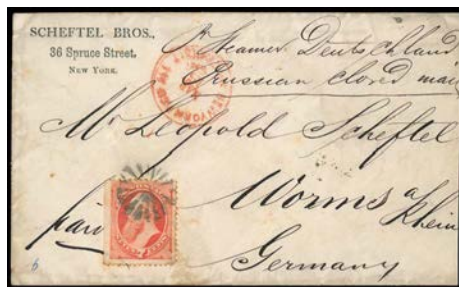 SCHEFTEL BROS.,
36 Spruce Street,
NEW YORK.
Pr Steamer Deutschland
Prussian closed mail
Mr Leopold Scheftel
Worms a/
Rhein
paid
Germany
6